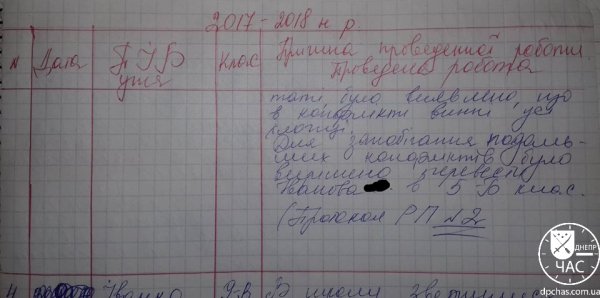 2017 - 2018 н р.
N Дата ПІБ учня Клас Причина проведенної роботи. Проведена робота
таті було виявлено, що
в конфлікті винні усі
хлопці.
Для запобігання подаль-
ших конфліктів було
вирішено перевести
Іванова в 5 Б клас.
(Протокол РП №2
В школу
ДНЕПР
ЧАС
dpchas.com.ua